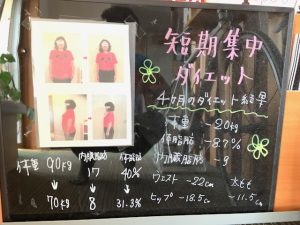 短期集中
ダイエット
4ヶ月のダイエット結果
体重 -20kg
体脂肪 -8.7%
内臓脂肪 -9
ウエスト -22cm 太もも
ヒップ -18.5cm -11.5cm
体重 内臓脂肪 体脂肪
90kg 17 40%
↓ ↓ ↓
70kg 8 31.3%